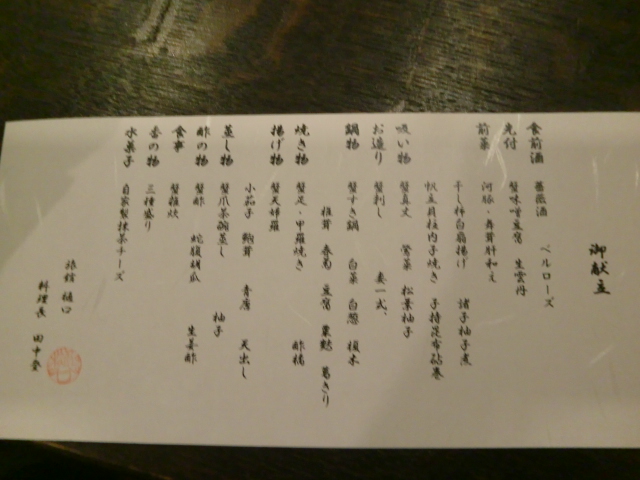 御献立
食前酒 薔薇酒 ベルローズ
先付 蟹味噌豆腐 生雲丹
前菜 河豚・舞茸肝和え
干し柿白扇揚げ 諸子柚子煮
帆立貝柱内子焼き 子持昆布砧巻
吸い物 蟹真丈 鶯菜 松葉柚子
お造り 蟹刺し 妻一式、
鍋物 蟹すき鍋 白菜 白葱 榎木
椎茸 春菊 豆腐 粟麩 葛きり
焼き物 蟹足・甲羅焼き 酢橘
揚げ物 蟹天婦羅
小茄子 鞘茸 青唐 天出し
蒸し物 蟹爪茶碗蒸し 柚子
酢の物 蟹酢 蛇腹胡瓜 生姜酢
食事 蟹雑炊
香の物 三種盛り
水菓子 自家製抹茶チーズ
旅館 樋口
料理長 田中